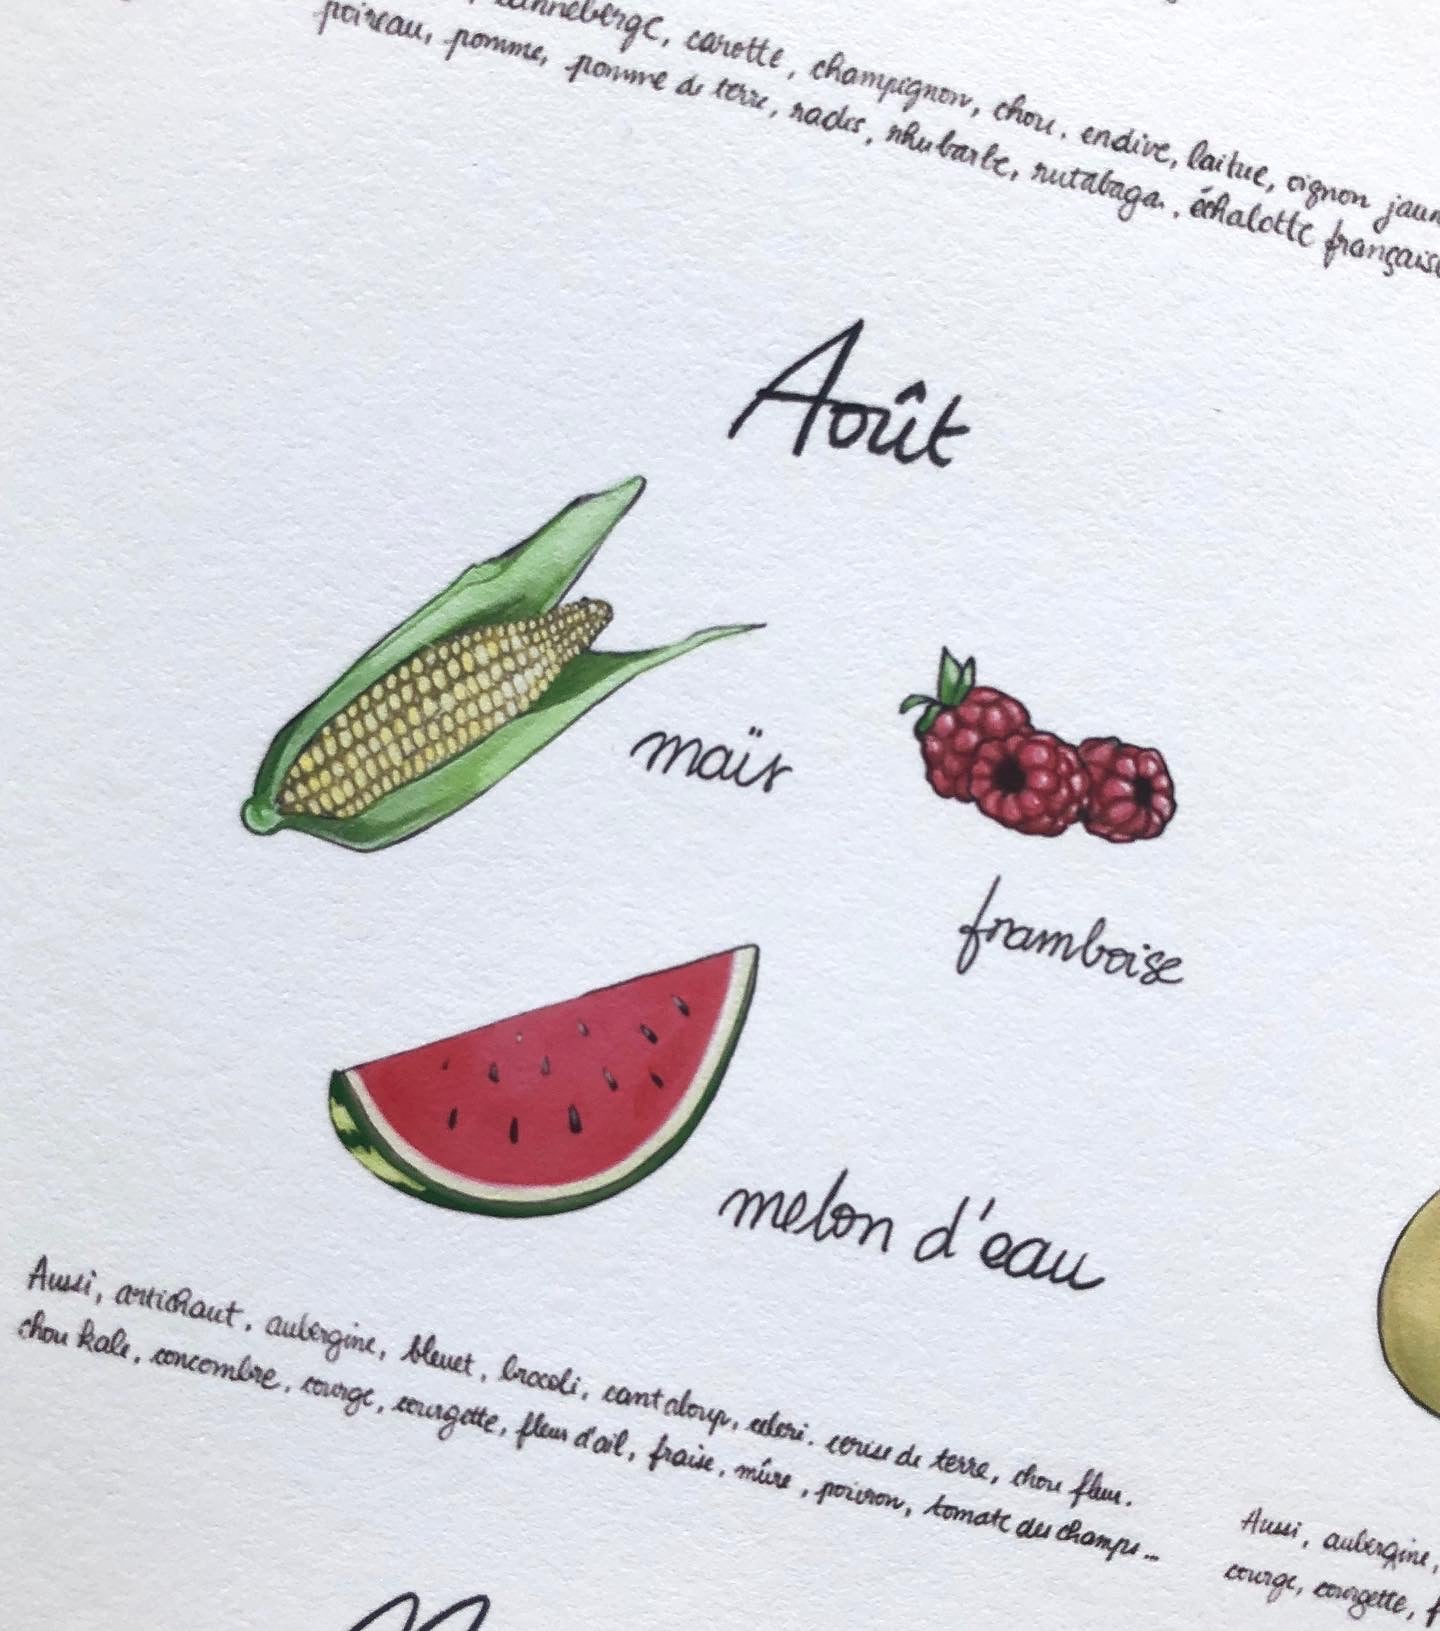 canneberge, carotte, champignon, chou, endive, laitue, oignon
poireau, pomme, pomme de terre, radis, rhubarbe, rutabaga, échalotte française
Août
maïs
framboise
melon d'eau
Aussi, artichaut, aubergine, bleuet, brocoli, cantaloup, céleri, cerise de terre, chou fleur,
chou kale, concombre, courge, courgette, fleur d'ail, fraise, mûre, poivron, tomate des champs...
Aussi, aubergine,
courge, courgette,